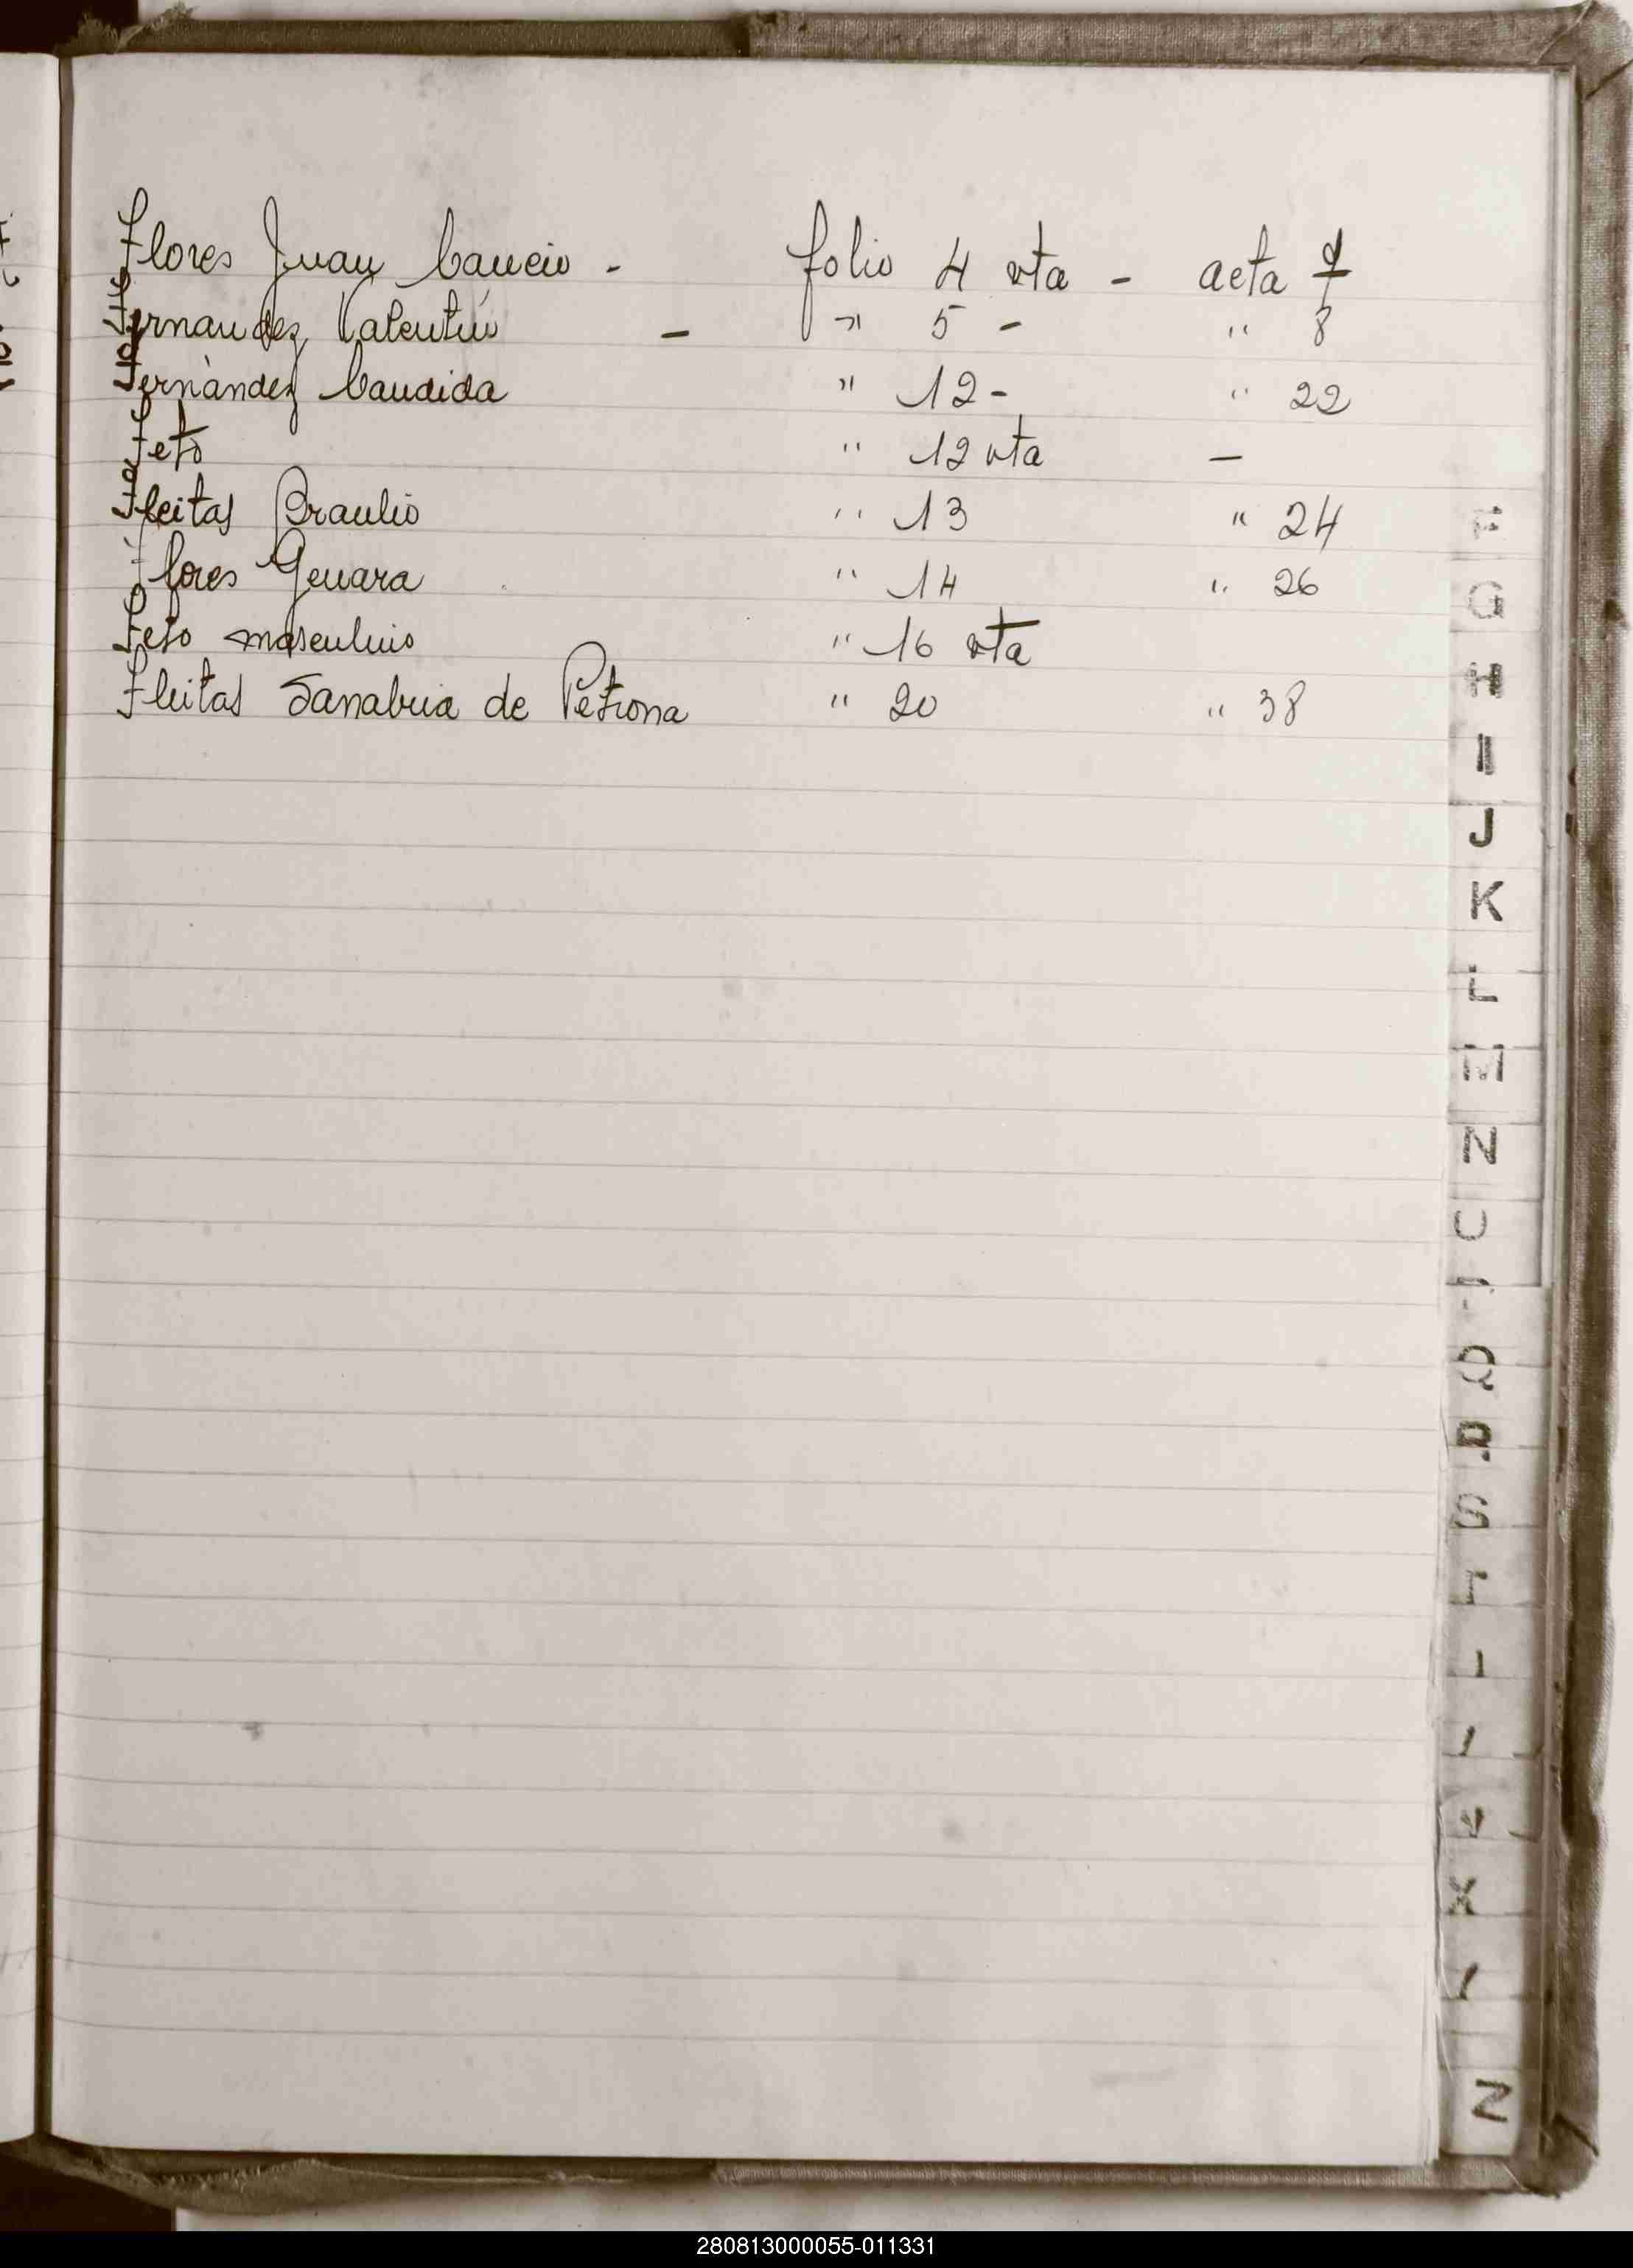 Flores Juan Cancio - folio 4 vta - acta 7
Fernandez Valentín - " 5 - " 8
Fernández Candida " 12 - " 22
Feto " 12 vta -
Fleitas Braulio " 13 " 24
Flores Genara " 14 " 26
Feto masculino " 16 vta
Fleitas Sanabria de Petrona " 20 " 38
F
G
H
I
J
K
L
M
N
Q
R
S
X
Z
280813000055-011331